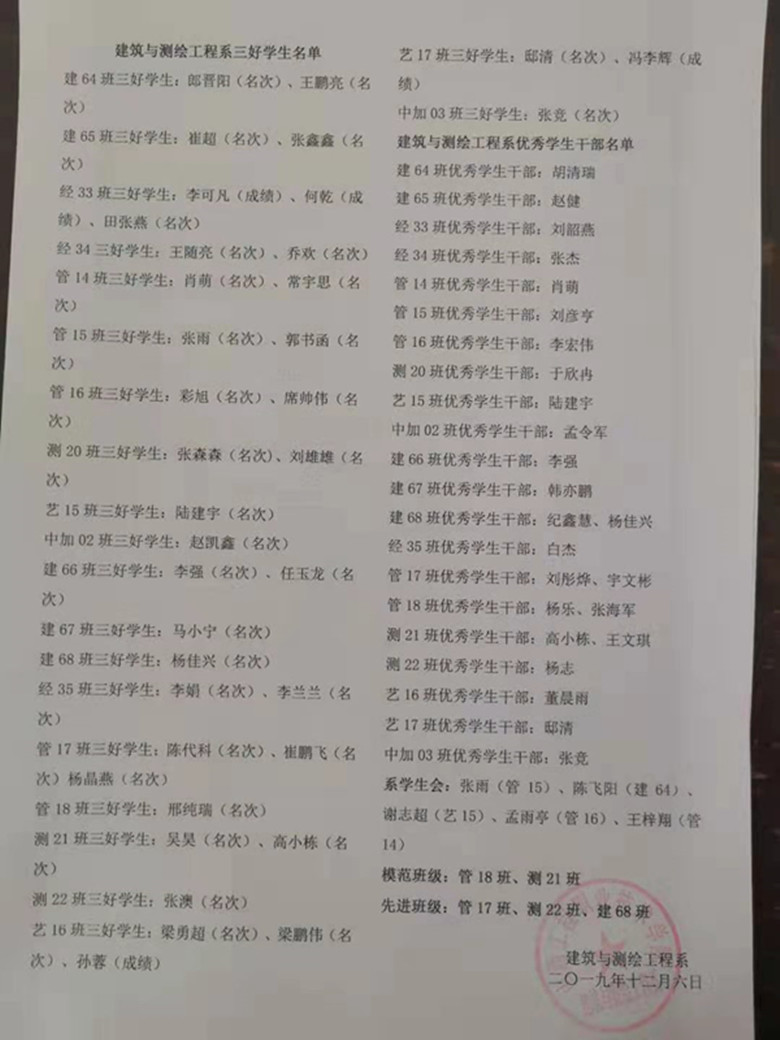 建筑与测绘工程系三好学生名单
建 64 班三好学生：郎晋阳（名次）、王鹏亮（名
次）
建 65 班三好学生：崔超（名次）、张鑫鑫（名
次）
经 33 班三好学生：李可凡（成绩）、何乾（成
绩）、田张燕（名次）
经 34 三好学生：王随亮（名次）、乔欢（名次）
管 14 班三好学生：肖萌（名次）、常宇思（名
次）
管 15 班三好学生：张雨（名次）、郭书函（名
次）
管 16 班三好学生：彩旭（名次）、席帅伟（名
次）
测 20 班三好学生：张森森（名次）、刘雄雄（名
次）
艺 15 班三好学生：陆建宇（名次）
中加 02 班三好学生：赵凯鑫（名次）
建 66 班三好学生：李强（名次）、任玉龙（名
次）
建 67 班三好学生：马小宁（名次）
建 68 班三好学生：杨佳兴（名次）
经 35 班三好学生：李娟（名次）、李兰兰（名
次）
管 17 班三好学生：陈代科（名次）、崔鹏飞（名
次）杨晶燕（名次）
管 18 班三好学生：邢纯瑞（名次）
测 21 班三好学生：吴昊（名次）、高小栋（名
次）
测 22 班三好学生：张澳（名次）
艺 16 班三好学生：梁勇超（名次）、梁鹏伟（名
次）、孙蓉（成绩）
艺 17 班三好学生：邸清（名次）、冯李辉（成
绩）
中加 03 班三好学生：张竞（名次）
建筑与测绘工程系优秀学生干部名单
建 64 班优秀学生干部：胡清瑞
建 65 班优秀学生干部：赵健
经 33 班优秀学生干部：刘韶燕
经 34 班优秀学生干部：张杰
管 14 班优秀学生干部：肖萌
管 15 班优秀学生干部：刘彦亨
管 16 班优秀学生干部：李宏伟
测 20 班优秀学生干部：于欣冉
艺 15 班优秀学生干部：陆建宇
中加 02 班优秀学生干部：孟令军
建 66 班优秀学生干部：李强
建 67 班优秀学生干部：韩亦鹏
建 68 班优秀学生干部：纪鑫慧、杨佳兴
经 35 班优秀学生干部：白杰
管 17 班优秀学生干部：刘彤烨、宇文彬
管 18 班优秀学生干部：杨乐、张海军
测 21 班优秀学生干部：高小栋、王文琪
测 22 班优秀学生干部：杨志
艺 16 班优秀学生干部：董晨雨
艺 17 班优秀学生干部：邸清
中加 03 班优秀学生干部：张竞
系学生会：张雨（管 15）、陈飞阳（建 64）、
谢志超（艺 15）、孟雨亭（管 16）、王梓翔（管
14）
模范班级：管 18 班、测 21 班
先进班级：管 17 班、测 22 班、建 68 班
建筑与测绘工程系
二〇一九年十二月六日